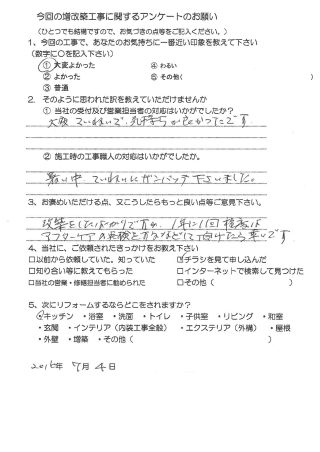 今回の増改築工事に関するアンケートのお願い
（ひとつでも結構ですので、お気づきの点等をご記入ください。）
1、今回の工事で、あなたのお気持ちに一番近い印象を教えて下さい
（数字に○を記入下さい）
① 大変よかった ④ わるい
② よかった ⑤ その他（ ）
③ 普通
2. そのように思われた訳を教えていただけませんか
① 当社の受付及び営業担当者の対応はいかがでしたか？
大変ていねいで、気持ちが良かったです
② 施工時の工事職人の対応はいかがでしたか。
暑い中 ていねいにガンバッテ下さいました。
3、お褒めいただける点、又こうしたらもっと良い点等ご意見下さい。
改築をしたばかりですが、1年に1回 検査は
アフターケアの点検を
して頂けたら幸いです
4、当社に、ご依頼されたきっかけをお教え下さい
□以前から依頼していた。知っていた □チラシを見て申し込んだ
□知り合い等に教えてもらった □インターネットで検索して見つけた
□当社の営業・修繕担当者に勧められた □その他（ ）
5、次にリフォームするならどこをされますか？
・キッチン ・浴室 ・洗面 ・トイレ ・子供室 ・リビング ・和室
・玄関 ・インテリア（内装工事全般） ・エクステリア（外構） ・屋根
・外壁 ・増築 ・その他（ ）
2016年 7月 4日